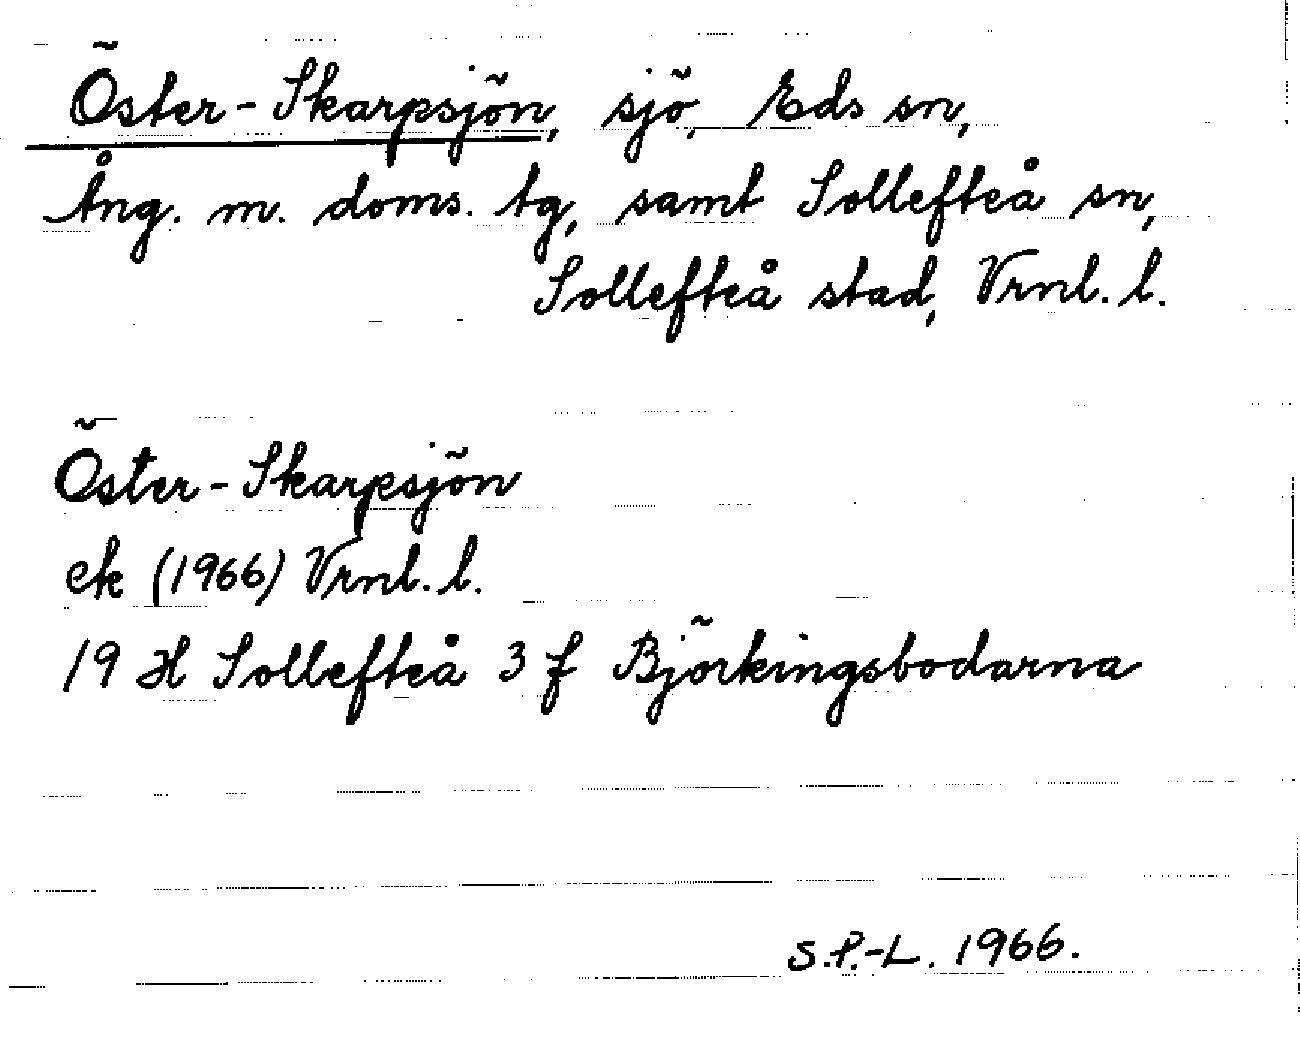 Öster-Skarpsjön, sjö, Eds sn,
Ång. m. doms. tg, samt Sollefteå sn,
Sollefteå stad, Vrnl. l.
Öster-Skarpsjön
ek (1966) Vrnl. l.
19 H Sollefteå 3 f Björkingsbodarna
S.P.-L. 1966.